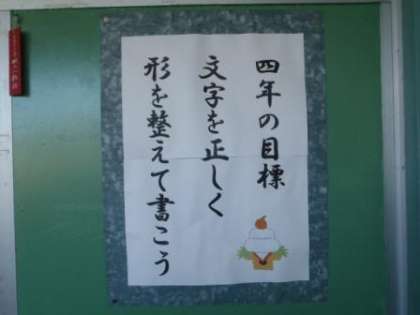 四年の目標
文字を正しく
形を整えて書こう